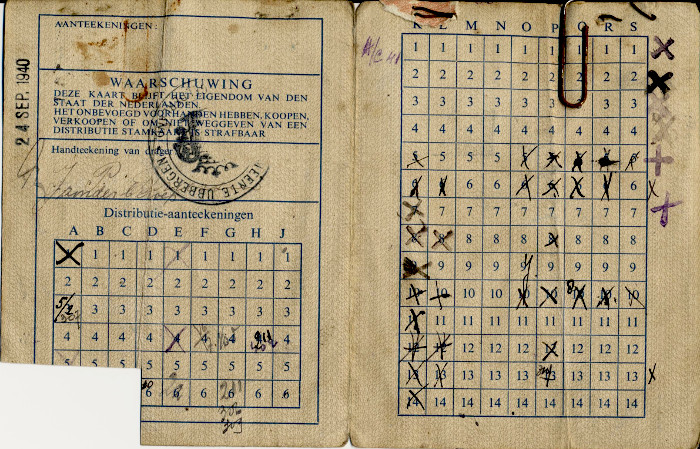 AANTEEKENINGEN:
24 SEP. 1940
WAARSCHUWING
DEZE KAART BLIJFT HET EIGENDOM VAN DEN
STAAT DER NEDERLANDEN.
HET ONBEVOEGD VOORHANDEN HEBBEN, KOOPEN,
VERKOOPEN OF OM NIET WEGGEVEN VAN EEN
DISTRIBUTIE STAMKAART IS STRAFBAAR
Handteekening van drager
UBBERGEN
Distributie-aanteekeningen
A B C D E F G H J
1 1 1 1 1 1 1 1
2 2 2 2 2 2 2 2 2
3 3 3 3 3 3 3 3
4 4 4 4 4 4
5 5 5 5 5 5 5 5
6 6 6 6 6
K L M N O P Q R S
1 1 1 1 1 1 1 1 1
2 2 2 2 2 2 2 2 2
3 3 3 3 3 3 3 3 3
4 4 4 4 4 4 4 4 4
5 5 5 5 5 5 5 5 5
6 6 6 6 6 6 6 6 6
7 7 7 7 7 7 7 7
8 8 8 8 8 8 8 8 8
9 9 9 9 9 9 9 9
10 10 10 10 10 10 10 10 10
11 11 11 11 11 11 11 11 11
12 12 12 12 12 12 12 12 12
13 13 13 13 13 13 13 13 13
14 14 14 14 14 14 14 14 14